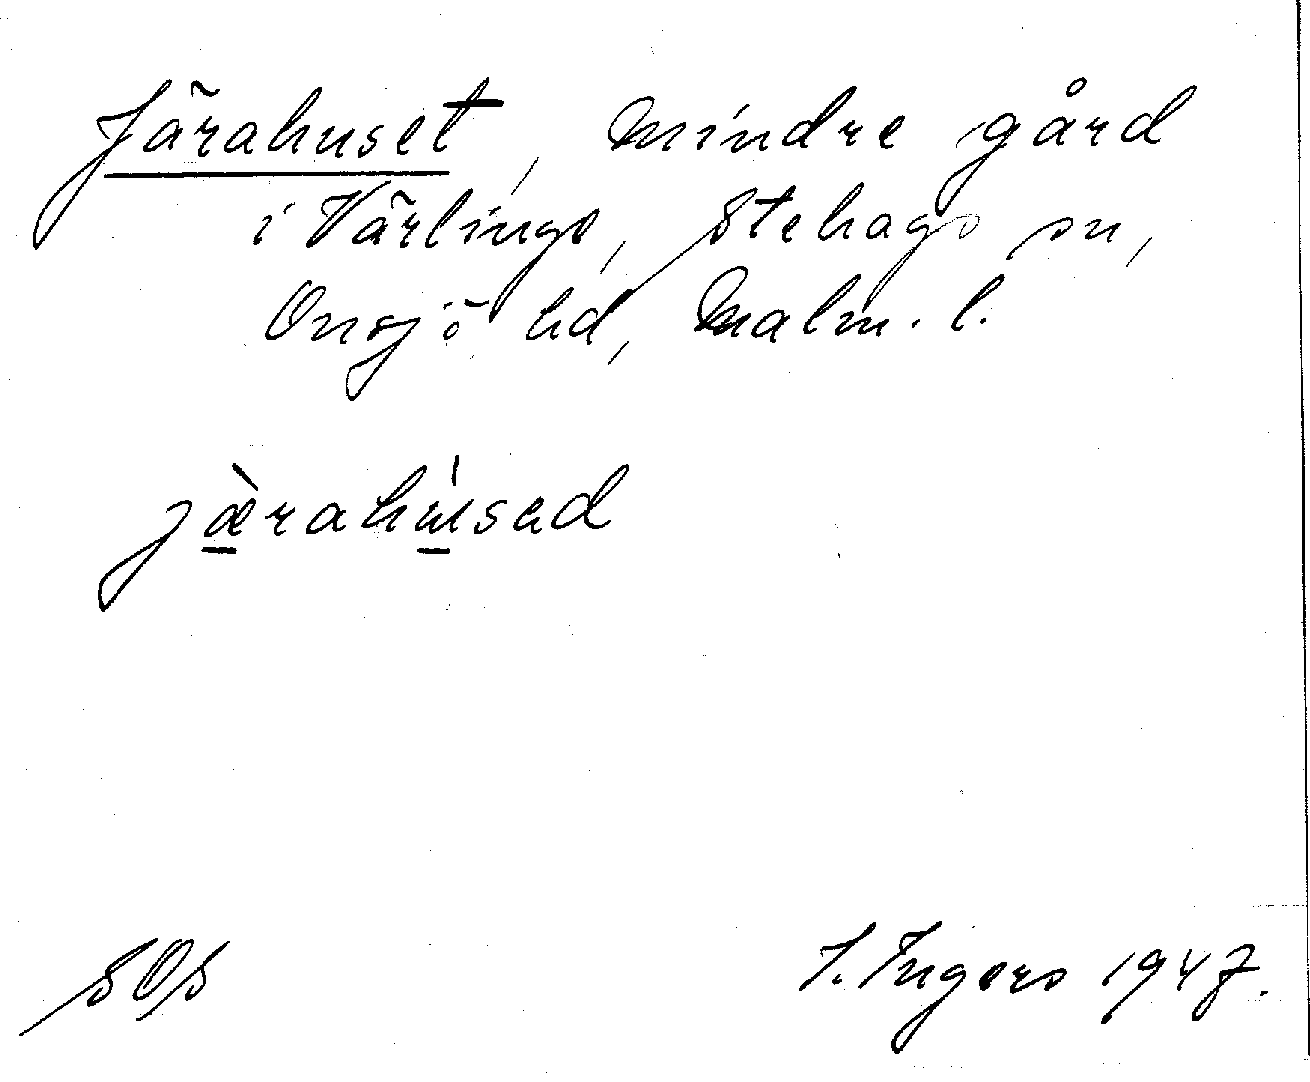 Järahuset, mindre gård
i Värlings, Stehags sn,
Onsjö hd, Malm. l.
jæ̀rahúsed
SOS
I. Ingers 1947.